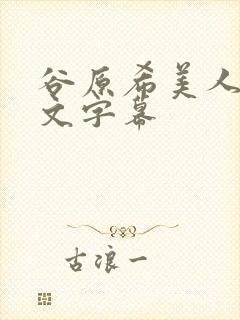 谷原希美人
文字幕
古浪一